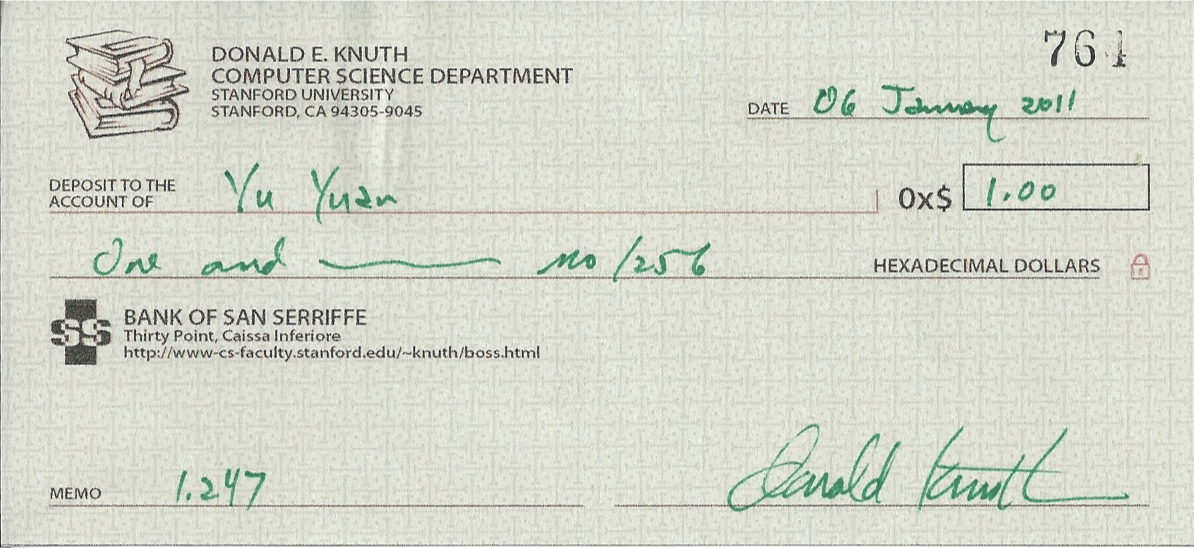 DONALD E. KNUTH
COMPUTER SCIENCE DEPARTMENT
STANFORD UNIVERSITY
STANFORD, CA 94305-9045
764
DATE 06 January 2011
DEPOSIT TO THE
ACCOUNT OF Yu Yuan
0x$ 1.00
One and no/256 HEXADECIMAL DOLLARS
SS BANK OF SAN SERRIFFE
Thirty Point, Caissa Inferiore
http://www-cs-faculty.stanford.edu/~knuth/boss.html
MEMO 1.247
Donald Knuth